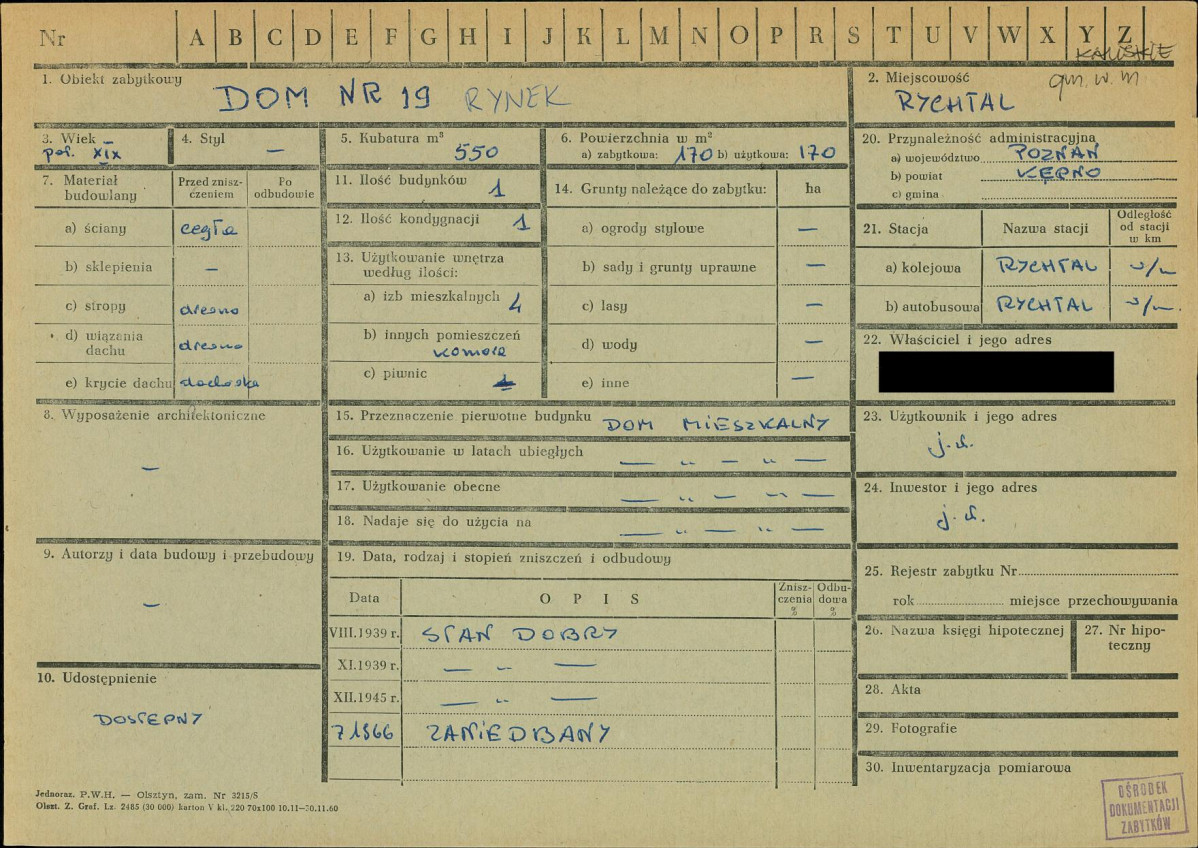 Nr A B C D E F G H I J K L M N O P R S T U V W X Y Z
KALISKIE
gm. w. m
1. Obiekt zabytkowy
DOM NR 19 RYNEK
2. Miejscowość
RYCHTAL
3. Wiek
poł. XIX
4. Styl
—
5. Kubatura m³
550
6. Powierzchnia w m²
a) zabytkowa: 170 b) użytkowa: 170
20. Przynależność administracyjna
a) województwo POZNAŃ
b) powiat KĘPNO
c) gmina
7. Materiał budowlany
Przed zniszczeniem
Po odbudowie
a) ściany cegła
b) sklepienia —
c) stropy drewno
d) wiązania dachu drewno
e) krycie dachu dachówka
11. Ilość budynków 1
12. Ilość kondygnacji 1
13. Użytkowanie wnętrza według ilości:
a) izb mieszkalnych 4
b) innych pomieszczeń
komora
c) piwnic
14. Grunty należące do zabytku: ha
a) ogrody stylowe —
b) sady i grunty uprawne —
c) lasy —
d) wody —
e) inne —
21. Stacja
Nazwa stacji
Odległość od stacji w km
a) kolejowa RYCHTAL
b) autobusowa RYCHTAL
22. Właściciel i jego adres
8. Wyposażenie architektoniczne
—
15. Przeznaczenie pierwotne budynku DOM MIESZKALNY
16. Użytkowanie w latach ubiegłych — „ — „ —
17. Użytkowanie obecne — „ — „ —
18. Nadaje się do użycia na — „ — „ —
23. Użytkownik i jego adres
j. w.
24. Inwestor i jego adres
j. w.
9. Autorzy i data budowy i przebudowy
—
19. Data, rodzaj i stopień zniszczeń i odbudowy
Data
O P I S
Zniszczenia %
Odbudowa %
VIII.1939 r. STAN DOBRY
XI.1939 r. — „ —
XII.1945 r. — „ —
7 1966 ZANIEDBANY
25. Rejestr zabytku Nr
rok miejsce przechowywania
26. Nazwa księgi hipotecznej
27. Nr hipoteczny
10. Udostępnienie
DOSTĘPNY
28. Akta
29. Fotografie
30. Inwentaryzacja pomiarowa
Jednoraz. P.W.H. — Olsztyn, zam. Nr 3215/S
Olszt. Z. Graf. Lz. 2485 (30 000) karton V kl. 220 70x100 10.11—30.11.60
OŚRODEK
DOKUMENTACJI
ZABYTKÓW